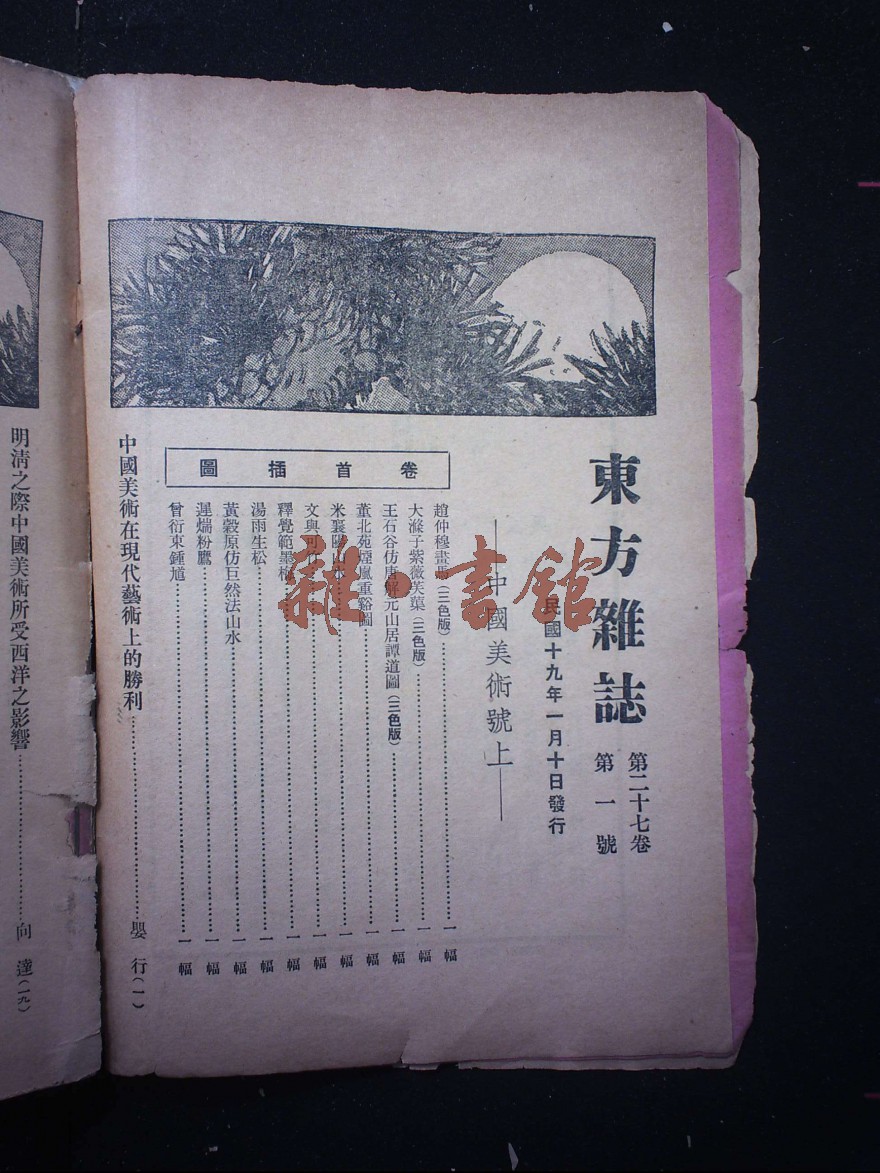 東方雜誌
第二十七卷
第一號
民國十九年一月十日發行
——中國美術號上——
卷首插圖
趙仲穆畫馬(三色版)……一幅
大滌子紫薇芙蕖(三色版)……一幅
王石谷仿唐解元山居譚道圖(三色版)……一幅
董北苑煙嵐重谿圖……一幅
米襄陽山水……一幅
文與可竹……一幅
釋覺範墨梅……一幅
湯雨生松……一幅
黃穀原仿巨然法山水……一幅
邊耑粉鷹……一幅
曾衍東鍾馗……一幅
中國美術在現代藝術上的勝利……嬰行(一)
明清之際中國美術所受西洋之影響……向達(一九)
雜·書館